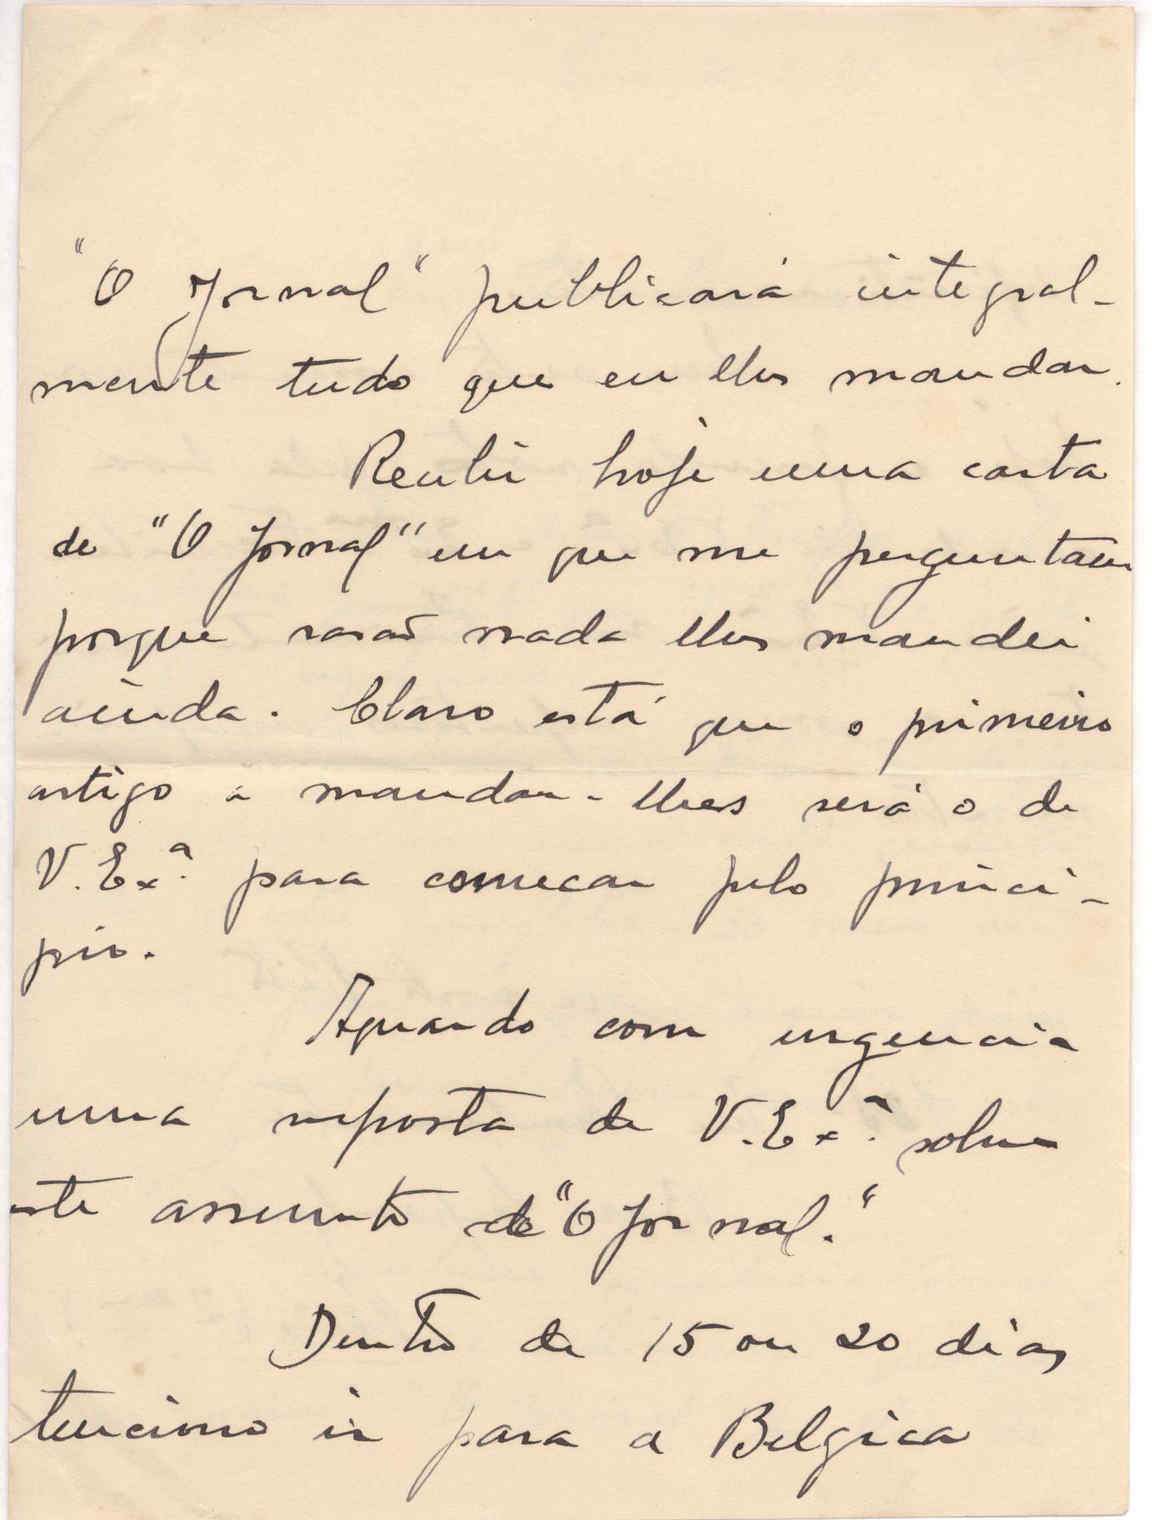 "O Jornal" publicará integral-
mente tudo que eu lhes mandar.
Recebi hoje uma carta
de "O Jornal" em que me perguntam
porque rasaõ nada lhes mandei
ainda. Claro está que o primeiro
artigo a mandar-lhes será o de
V. Exª. para começar pelo princi-
pio.
Aguardo com urgencia
uma resposta de V. Exª. sobre
este assunto de "O Jornal."
Dentro de 15 ou 20 dias
tenciono ir para a Belgica